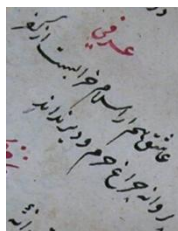 عرفی
عاشق هم از اسلام خرابست و هم از کفر
پروانه چراغ حرم و دیر نداند